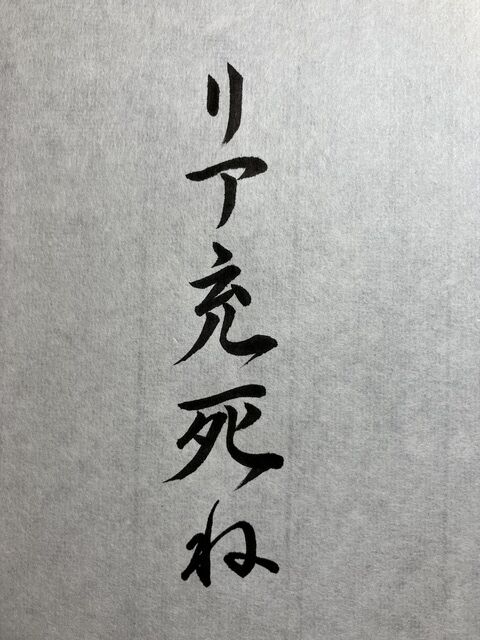 リア充死ね